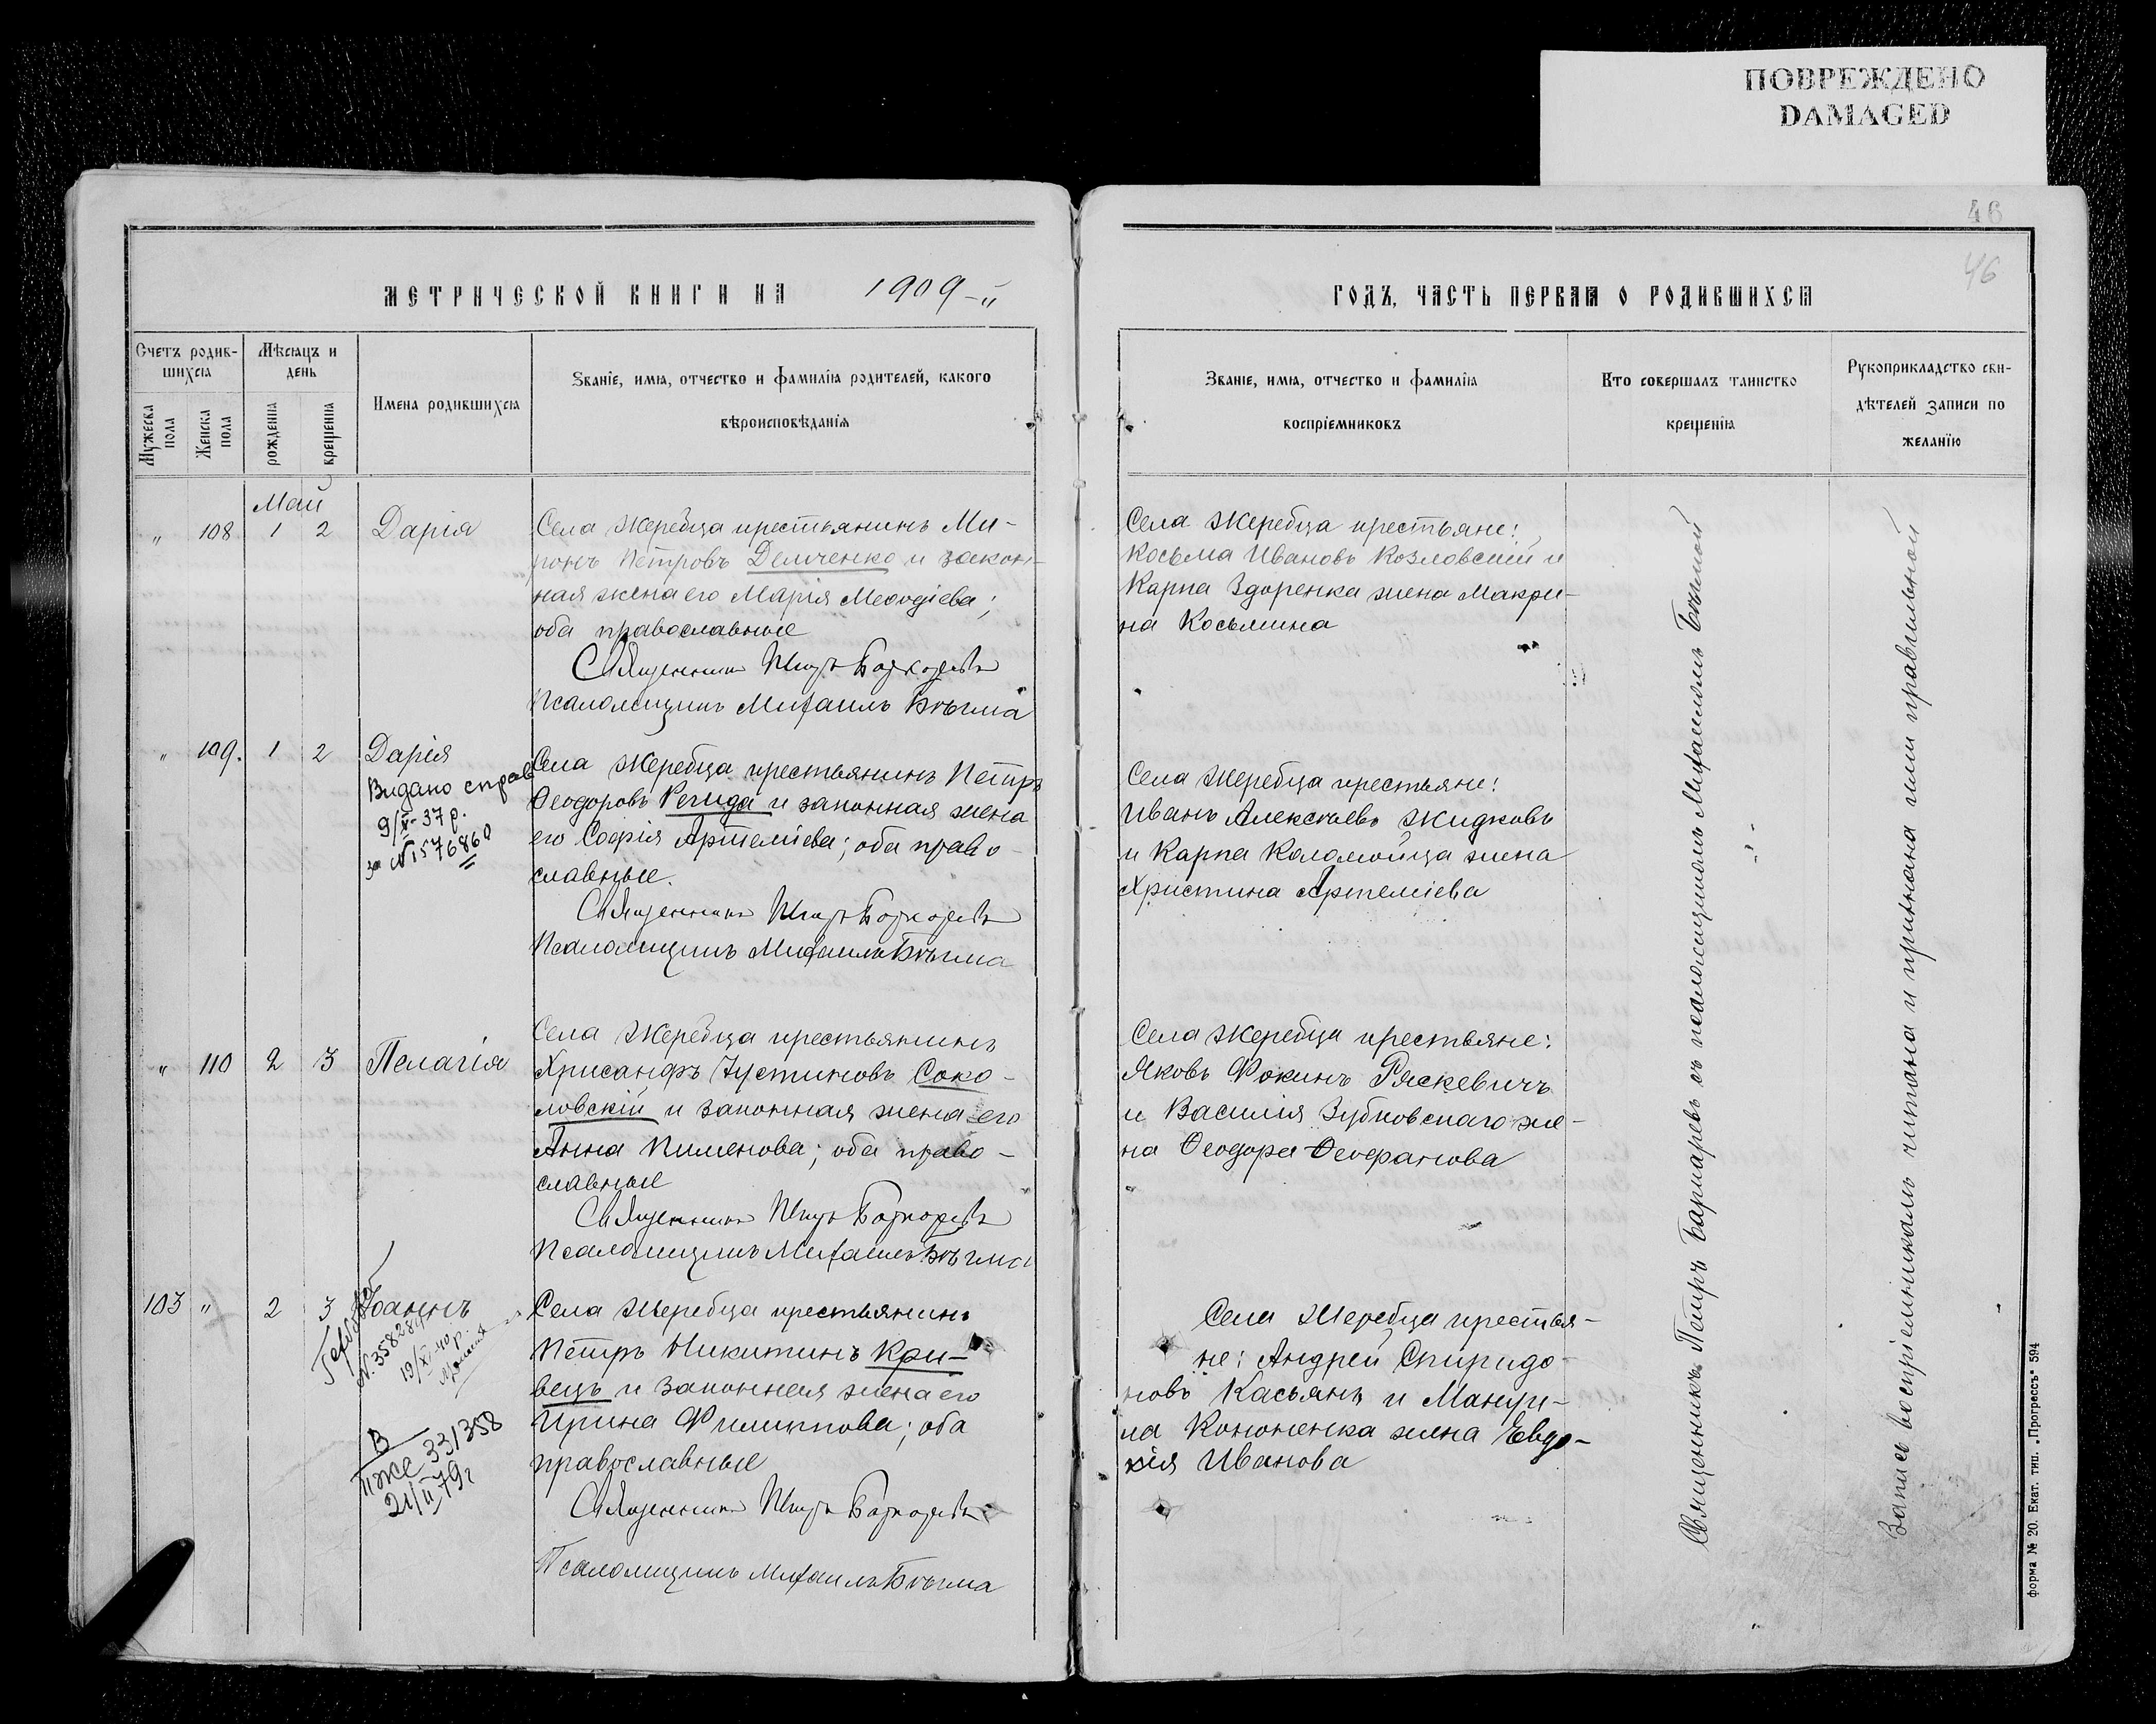 ПОВРЕЖДЕНО
DAMAGED
46
46
МЕТРИЧЕСКОЙ КНИГИ НА 1909-й
ГОДЪ, ЧАСТЬ ПЕРВАЯ О РОДИВШИХСЯ
Счетъ родив-
шихся
Мужеска
пола
Женска
пола
Мѣсяцъ и
день
рожденія
крещенія
Имена родившихся
Званіе, имя, отчество и фамилія родителей, какого
вѣроисповѣданія
Званіе, имя, отчество и фамилія
воспріемниковъ
Кто совершалъ таинство
крещенія
Рукоприкладство сви-
дѣтелей записи по
желанію
Май
" 108 1 2 Дарія
Села Жеребца крестьянинъ Ми-
ронъ Петровъ Демченко и закон-
ная жена его Марія Меѳодіева;
оба православные
Священникъ Петръ Боднаревъ
Псаломщикъ Михаилъ Бѣгма
Села Жеребца крестьяне:
Косьма Ивановъ Козловскій и
Карпа Здоренка жена Макри-
на Косьмина
" 109. 1 2 Дарія
Видано справ
9/X-37 р.
за №1576860
Села Жеребца крестьянинъ Петръ
Ѳеодоровъ Регида и законная жена
его Софія Артеміева; оба право-
славные.
Священникъ Петръ Боднаревъ
Псаломщикъ Михаилъ Бѣгма
Села Жеребца крестьяне:
Иванъ Алексѣевъ Жидковъ
и Карпа Коломойца жена
Христина Артеміева
" 110 2 3 Пелагія
Села Жеребца крестьянинъ
Хрисанфъ Іустиновъ Соко-
ловскій и законная жена его
Анна Пименова; оба право-
славные
Священникъ Петръ Боднаревъ
Псаломщикъ Михаилъ Бѣгма
Села Жеребца крестьяне:
Яковъ Фокинъ Ряскевичъ
и Василія Зубковскаго же-
на Ѳеодора Ѳеофанова
103 " 2 3 Іоаннъ
19/XI-40 р.
В
ПЖС 331358
21/II 79г
Села Жеребца крестьянинъ
Петръ Никитинъ Кри-
вецъ и законная жена его
Ирина Филиппова; оба
православные
Священникъ Петръ Боднаревъ
Псаломщикъ Михаилъ Бѣгма
Села Жеребца крестья-
не: Андрей Спиридо-
новъ Касьянъ и Мануи-
ла Кононенка жена Евдо-
кія Иванова
Священникъ Петръ Боднаревъ съ псаломщикомъ Михаиломъ Бѣгмой
Запись воспріемникамъ читана и признана ими правильной
форма № 20. Екат. тип. „Прогрессъ" 594